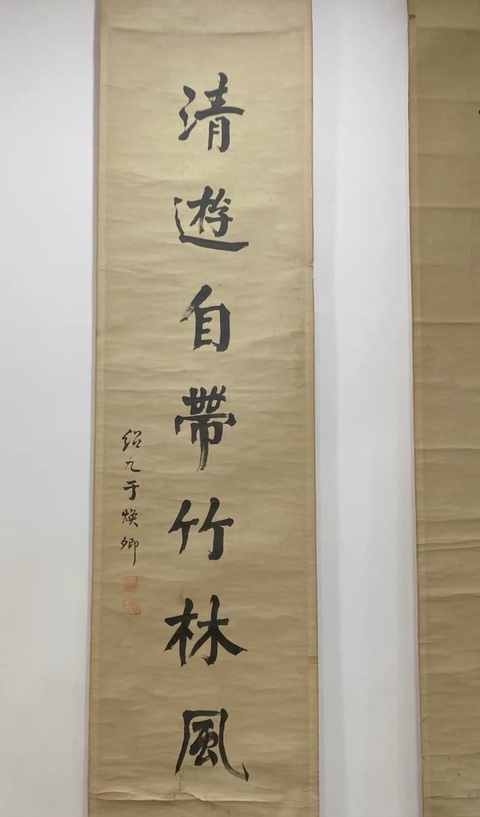 清遊自帶竹林風
紹九于煥卿